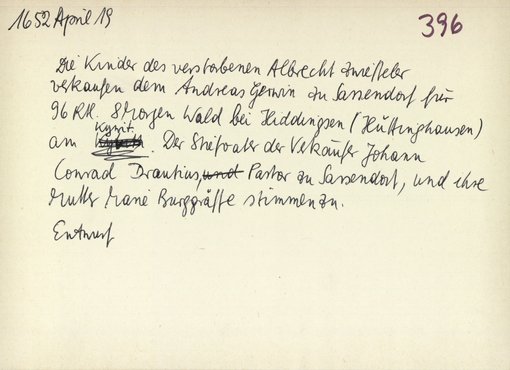 1652 April 19
396
Die Kinder des verstorbenen Albrecht Zwifteler
verkaufen dem Andreas Gerwin zu Sassendorf für
96 Rtl. 8 Morgen Wald bei Hiddingsen (Hüttinghausen)
am Kyrit. Der Stiefvater der Verkäufer Johann
Conrad Drautius, und Pastor zu Sassendorf, und ihre
Mutter Marie Burggräffe stimmen zu.
Entwurf